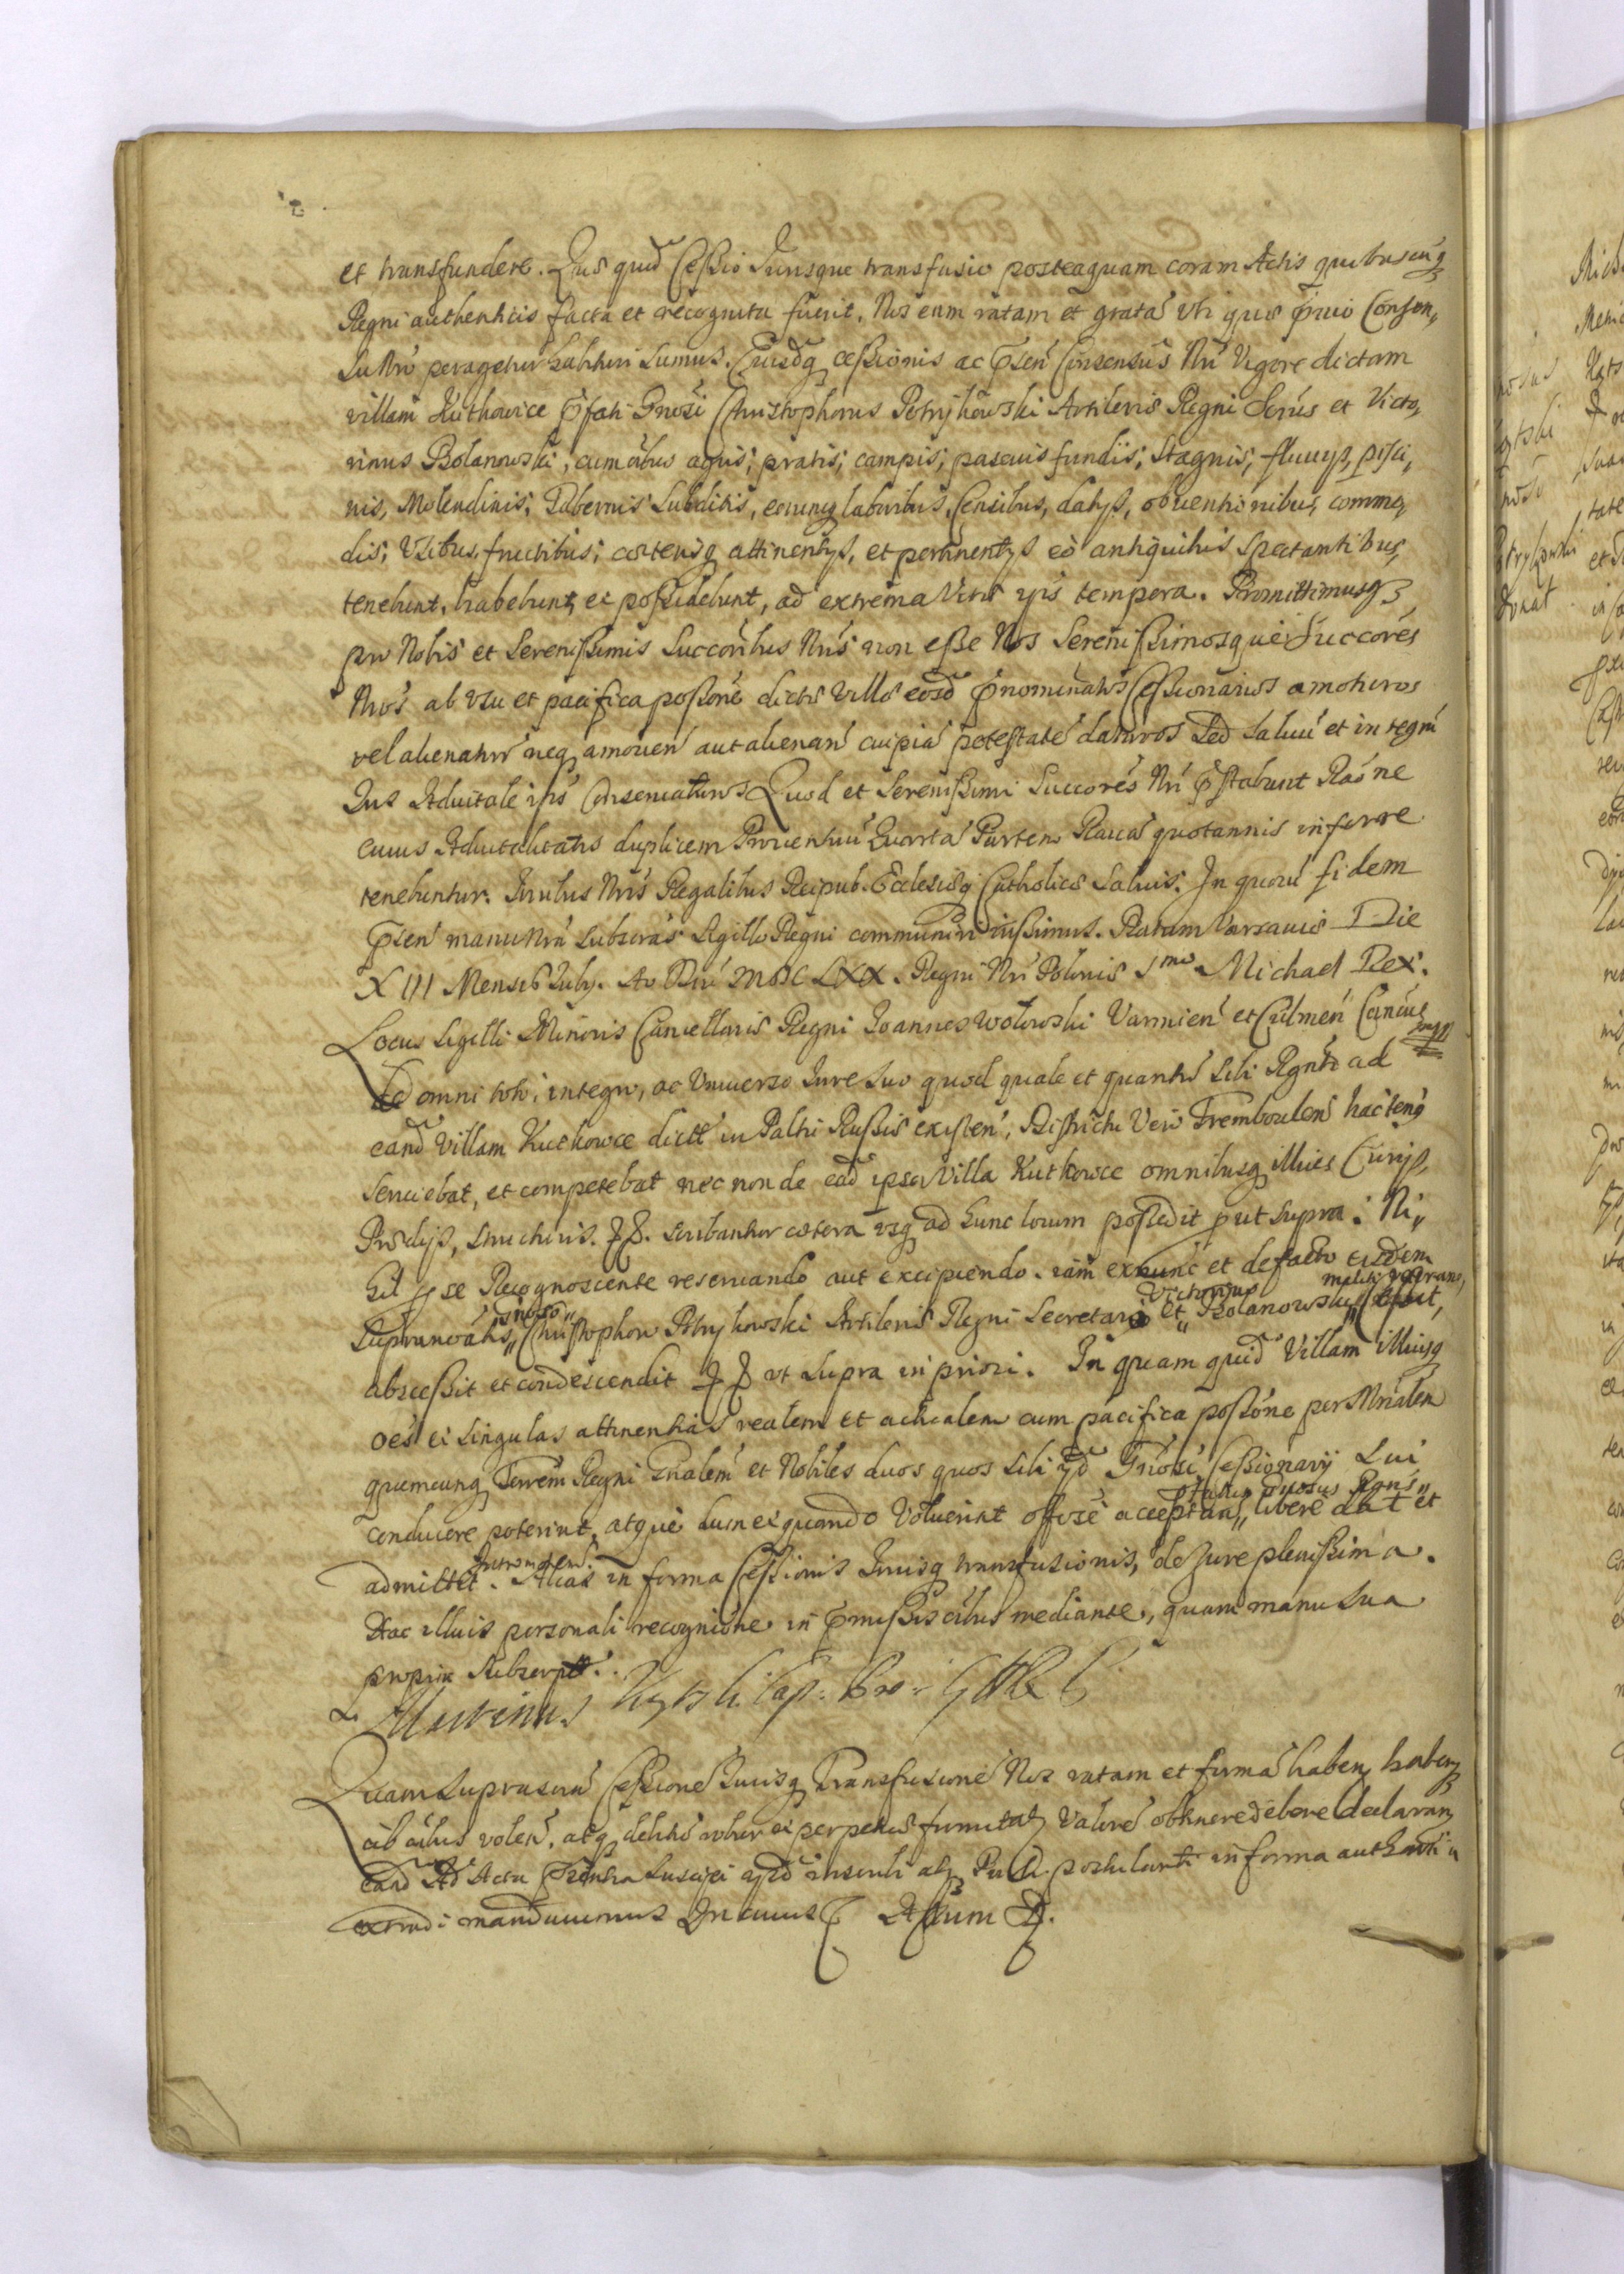 et transfundere. Quae quid Cessio Jurisque transfusio posteaquam coram Actis quibuscuq
Regni authenticis facta et recognita fuerit, Nos eam ratam et gratā Vti quae pruio Consen„
su Nrō peragetur habituri sumus. Eiusdq cessionis ac psen Consensus Nri Vigore dictam
villam Kutkowce pfati Gnosi Christophorus Petrykowski Artileriæ Regni Scrius et Victo„
rinus Bolanowski, cum oibus agris, pratis, campis, pascuis fundis, stagnis, fluuys, pisci„
nis, Molendinis, Tabernis Subditis, eorunq laboribus, Censibus, datys, obuentionibus, commo„
dis, Vsibus, fructibus, coeterisq attinentys, et pertinentys eo antiquitus spectantibus,
tenebunt, habebunt, et possidebunt, ad extrema Vitæ ipsis tempora. Promittimusq
pro Nobis et Serenissimis Succoribus Nris non esse Nos Serenissimosque Succores
Nros ab vsu et pacifica possone dictæ Villæ eosd pnominatos Cessionarios amoturos
vel alienaturos neq amouen aut alienan cuipiā potestatē daturos Sed saluū et integrū
Jus Aduitale ipsis conseruaturos Quod et Serenissimi Succores Nri pstabunt Raone
cuius Aduitalitatis duplicem Prouentuū Quartā Partem Rauā quotannis inferre
tenebuntur. Iuribus Nris Regalibus Reipub. Ecclesieq Catholicæ Saluis. In quorū fidem
psen manu Nrā subscras Sigillo Regni communiri iussimus. Datum Varsauiæ Die
XIII Mensis July. Ao Dni MDCLXX. Regni Nri Poloniæ Imo Michael Rex.
Locus Sigilli Minoris Cancellariæ Regni Joannes Wołowski Varmien et Culmen Canous
mpp
De omni toto, integro, ac Vniuerso Jure suo quod quale et quantū sibi Rgnti ad
eand Villam Kutkowce dictā in Paltu Russiæ existen, Districtu Vero Tremboulen hactenq
seruiebat, et competebat nec non de ead ipsa Villa Kutkowce omnibusq illius Curijs,
Prædijs, structuris. scribantur cætera vsq ad hunc locum possedit put supra. Ni„
hil p se Recognoscente reseruando aut excipiendo. iam exnunc et de facto eisdem
Gnoso„ Victorino militi veterano,
Supranoatis„ Christophoro Petrykowski Artileriæ Regni Secretario et„ Bolanowski„ Cessit,
abscessit et condescendit vt supra in priori. In quam quid Villam illiusq
oes et singulas attinentias realem et actualem cum pacifica possone per Mrialem
quemcunq Terrem Regni Gnalem et Nobiles duos quos sibi ijd Gnosi Cessionarij Sui
præfatus Gnosus Rgns„
conducere poterint, atque dum et quando Voluerint offerre acceptan„ libere dat et
Intromissem
admittet. Alias in forma Cessionis Jurisq transfusionis, de Jure plenissima.
Hac illius personali recognitione in pmissis oibus mediante, quam manu sua
propria Subscripsit.
Martinus Kątski Cap:
Quam suprascrā Cessionē Jurisq Transfusionē Nos ratam et firmā haben,
ab oibus volen, atq debitū robur et perpetuæ firmitatis Valorē obtinere debere declaran
eand Ad Acta Præntia suscipi ijsd inseribi atq Parti postulanti in forma authentica
extradi mandauimus In cuius Actum